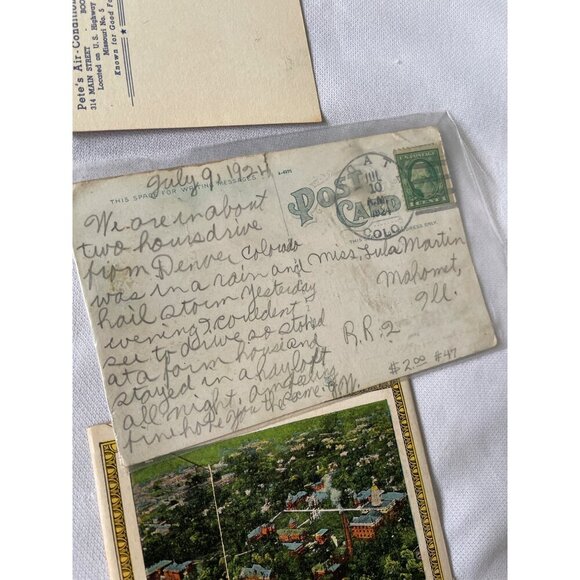 Pete's Air-Condition
314 MAIN STREET - BOO
Located on U. S. Highway
Missouri No. 5
Known for Good Fo
July 9, 1924
THIS SPACE FOR WRITING MESSAGES
A-4571
POST CARD
THIS ADDRESS ONLY
JUL
10
1924
COLO.
CENT
We are in about
two hours drive
from Denver Colorado
was in a rain and
hail storm yesterday
evening & couldent
see to drive, so stoped
at a farm house and
stayed in a hayloft
all night, am feeling
fine hope you the same. J.M.
Miss, Lula Martin
Mahomet,
Ill.
R.R. 2
$2.00 #47